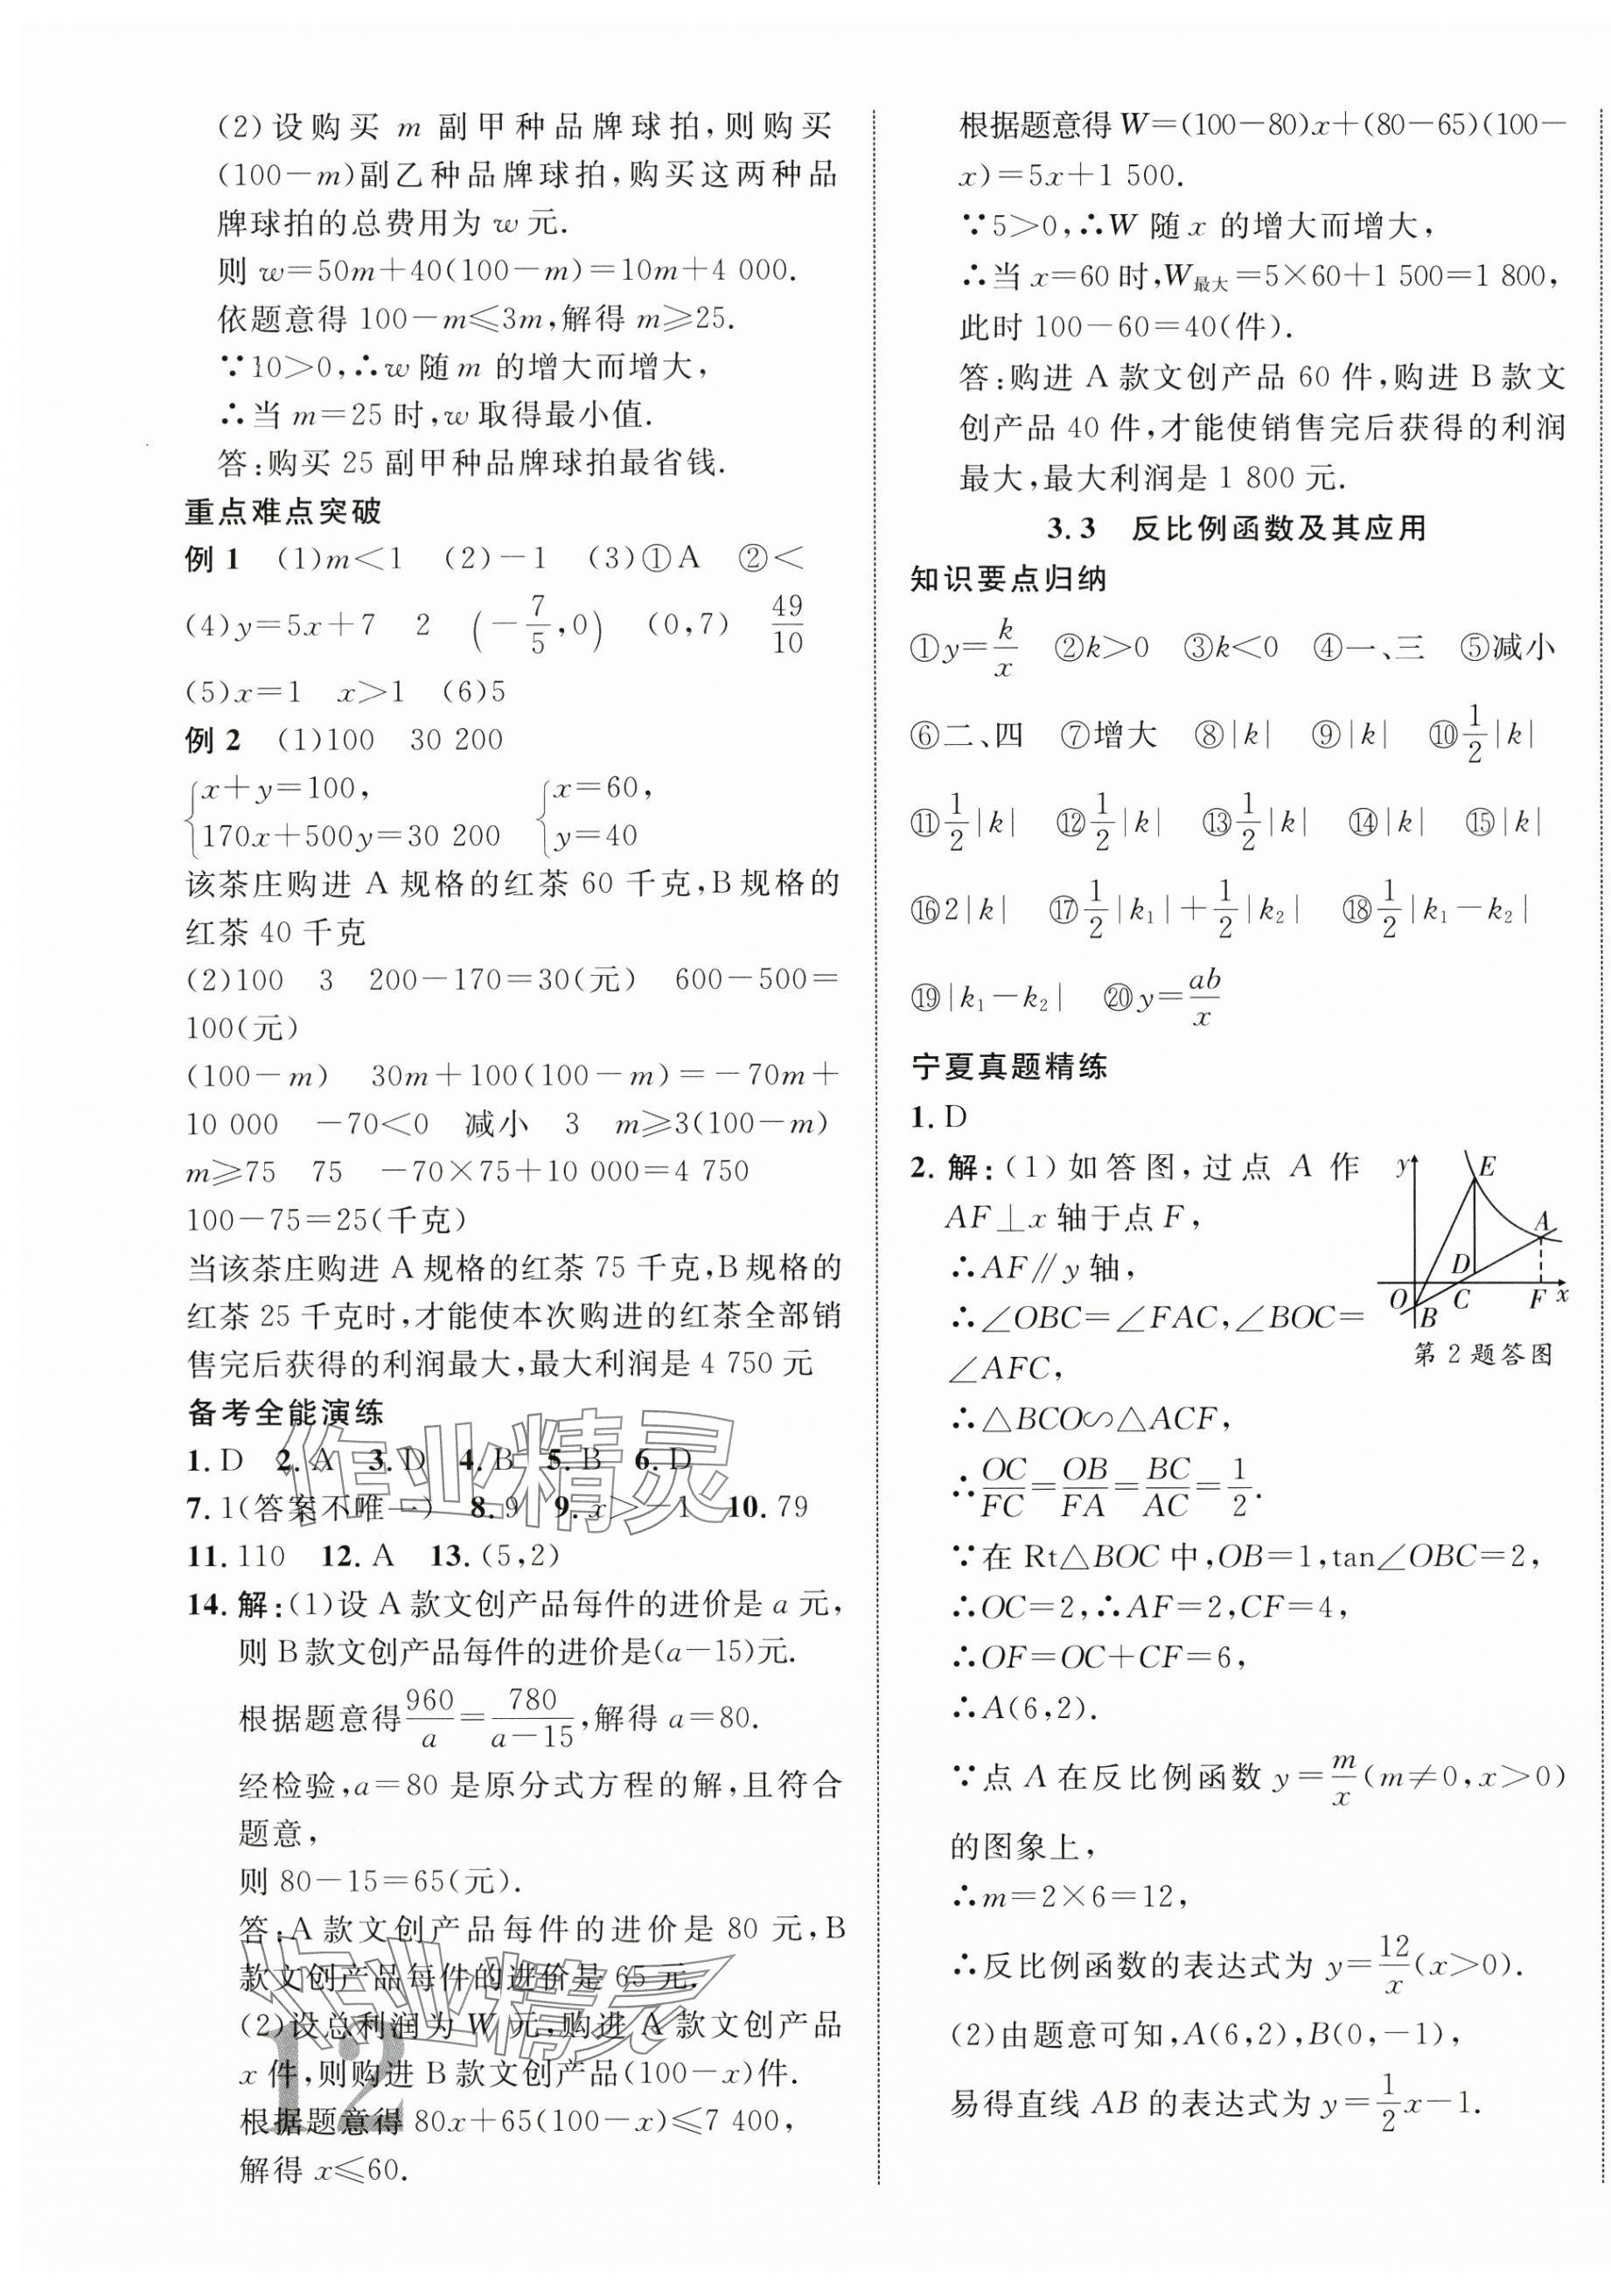 (2)设购买 m 副甲种品牌球拍,则购买
(100-m)副乙种品牌球拍,购买这两种品
牌球拍的总费用为 w 元.
则 w=50m+40(100-m)=10m+4 000.
依题意得 100-m≤3m,解得 m≥25.
∵10>0,∴w 随 m 的增大而增大,
∴当 m=25 时,w 取得最小值.
答:购买 25 副甲种品牌球拍最省钱.
重点难点突破
例 1 (1)m<1 (2)-1 (3)①A ②<
(4)y=5x+7 2 (-7/5,0) (0,7) 49/10
(5)x=1 x>1 (6)5
例 2 (1)100 30 200
{x+y=100, {x=60,
170x+500y=30 200 y=40
该茶庄购进 A 规格的红茶 60 千克,B 规格的
红茶 40 千克
(2)100 3 200-170=30(元) 600-500=
100(元)
(100-m) 30m+100(100-m)=-70m+
10 000 -70<0 减小 3 m≥3(100-m)
m≥75 75 -70×75+10 000=4 750
100-75=25(千克)
当该茶庄购进 A 规格的红茶 75 千克,B 规格的
红茶 25 千克时,才能使本次购进的红茶全部销
售完后获得的利润最大,最大利润是 4 750 元
备考全能演练
1. D 2. A 3. D 4. B 5. B 6. D
7. 1(答案不唯一) 8. 9 9. x>-1 10. 79
11. 110 12. A 13. (5,2)
14. 解:(1)设 A 款文创产品每件的进价是 a 元,
则 B 款文创产品每件的进价是(a-15)元.
根据题意得960/a=780/(a-15),解得 a=80.
经检验,a=80 是原分式方程的解,且符合
题意,
则 80-15=65(元).
答:A 款文创产品每件的进价是 80 元,B
款文创产品每件的进价是 65 元.
(2)设总利润为 W 元,购进 A 款文创产品
x 件,则购进 B 款文创产品(100-x)件.
根据题意得 80x+65(100-x)≤7 400,
解得 x≤60.
作业精灵
作业精灵
12
根据题意得 W=(100-80)x+(80-65)(100-
x)=5x+1 500.
∵5>0,∴W 随 x 的增大而增大,
∴当 x=60 时,W最大=5×60+1 500=1 800,
此时 100-60=40(件).
答:购进 A 款文创产品 60 件,购进 B 款文
创产品 40 件,才能使销售完后获得的利润
最大,最大利润是 1 800 元.
3.3 反比例函数及其应用
知识要点归纳
①y=k/x ②k>0 ③k<0 ④一、三 ⑤减小
⑥二、四 ⑦增大 ⑧|k| ⑨|k| ⑩1/2|k|
⑪1/2|k| ⑫1/2|k| ⑬1/2|k| ⑭|k| ⑮|k|
⑯2|k| ⑰1/2|k₁|+1/2|k₂| ⑱1/2|k₁-k₂|
⑲|k₁-k₂| ⑳y=ab/x
宁夏真题精练
1. D
2. 解:(1)如答图,过点 A 作
AF⊥x 轴于点 F,
∴AF∥y 轴,
∴∠OBC=∠FAC,∠BOC=
∠AFC,
y E A D O B C F x
第 2 题答图
∴△BCO∽△ACF,
∴OC/FC=OB/FA=BC/AC=1/2.
∵在 Rt△BOC 中,OB=1,tan∠OBC=2,
∴OC=2,∴AF=2,CF=4,
∴OF=OC+CF=6,
∴A(6,2).
∵点 A 在反比例函数 y=m/x(m≠0,x>0)
的图象上,
∴m=2×6=12,
∴反比例函数的表达式为 y=12/x(x>0).
(2)由题意可知,A(6,2),B(0,-1),
易得直线 AB 的表达式为 y=1/2x-1.